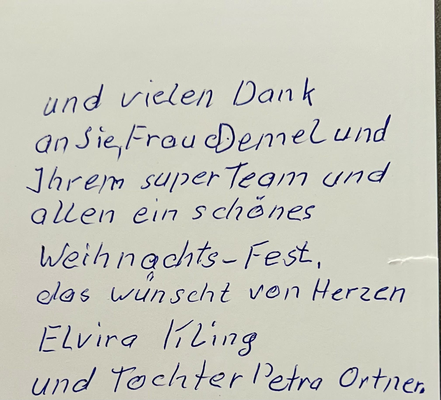 und vielen Dank
an Sie, Frau Demel und
Ihrem super Team und
allen ein schönes
Weihnachts-Fest,
das wünscht von Herzen
Elvira Kling
und Tochter Petra Ortner.